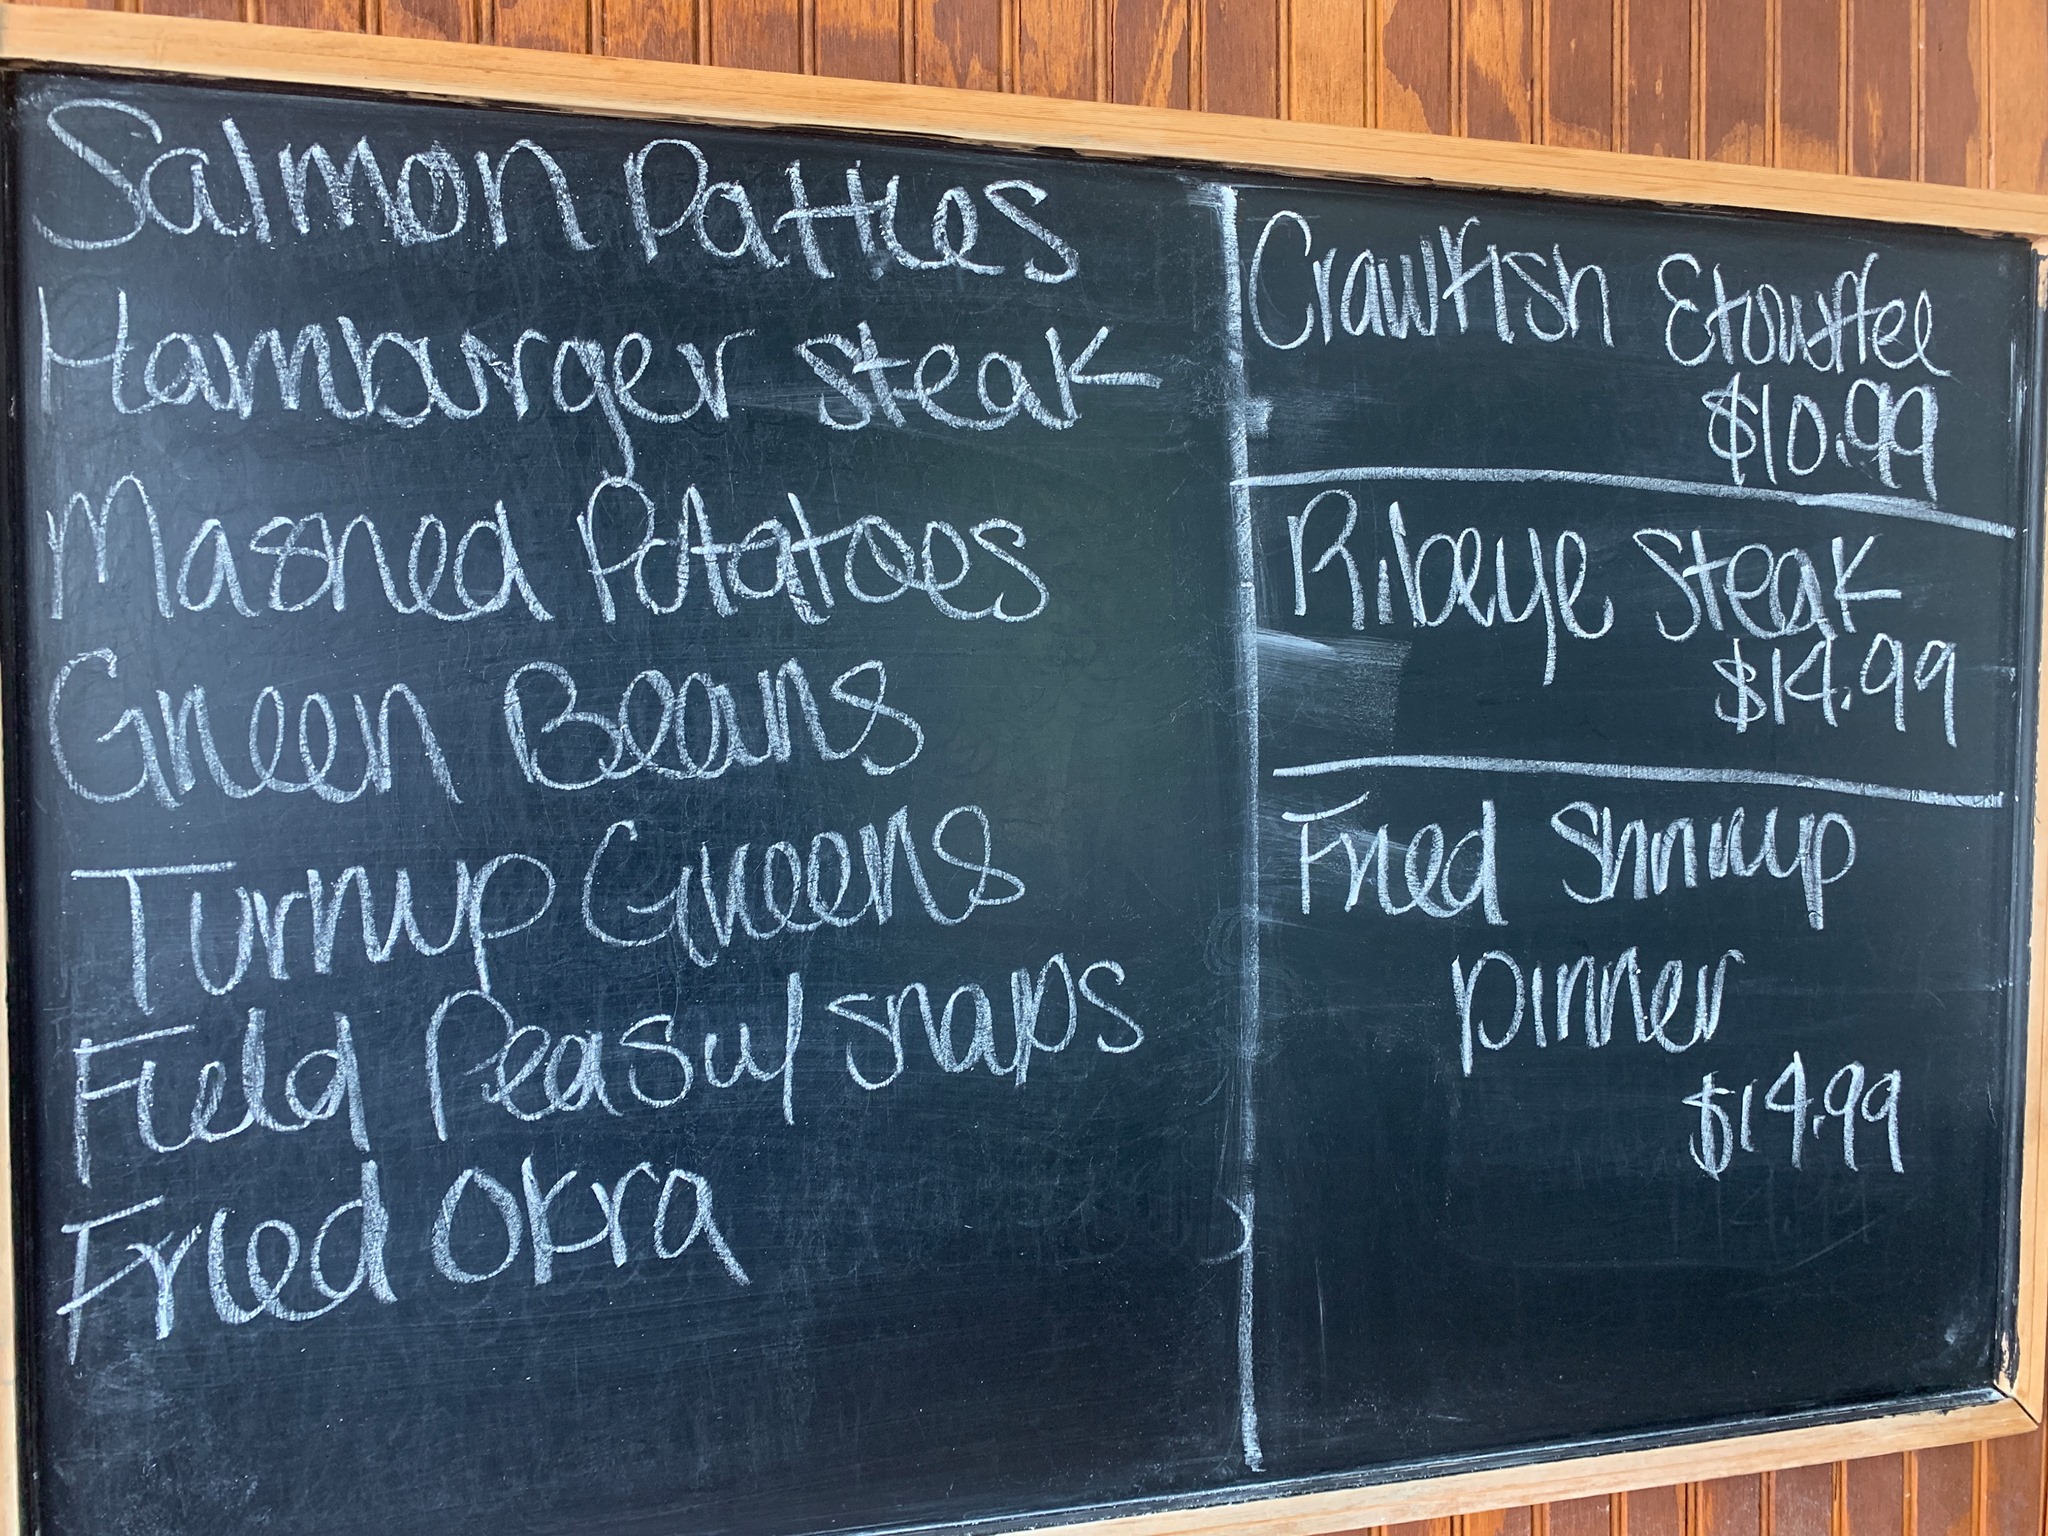 Salmon Patties
Hamburger Steak
Mashed Potatoes
Green Beans
Turnup Greens
Field Peas w/ snaps
Fried Okra
Crawfish Etouffee
$10.99
Ribeye Steak
$14.99
Fried Shrimp
Dinner
$14.99